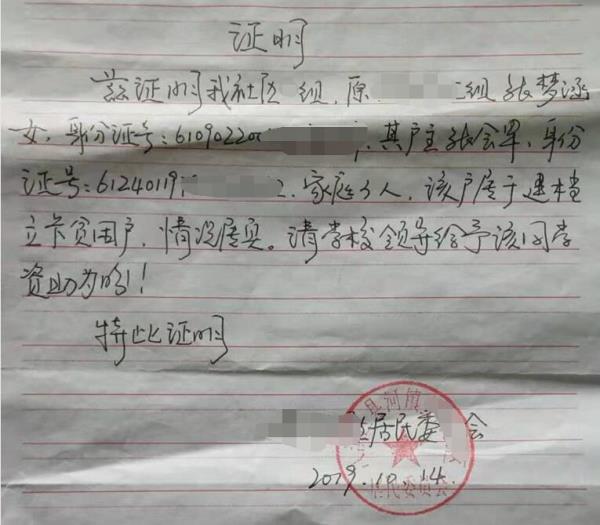 证明
兹证明我社区 组,原 二组张梦涵
女,身份证号:6109022 ,其户主张会军,身份
证号:61240119 2,家庭 人,该户属于建档
立卡贫困户,情况属实。请学校领导给予该同学
资助为盼!
特此证明
居民委 会
2019.10.14.
县河镇
居民委员会